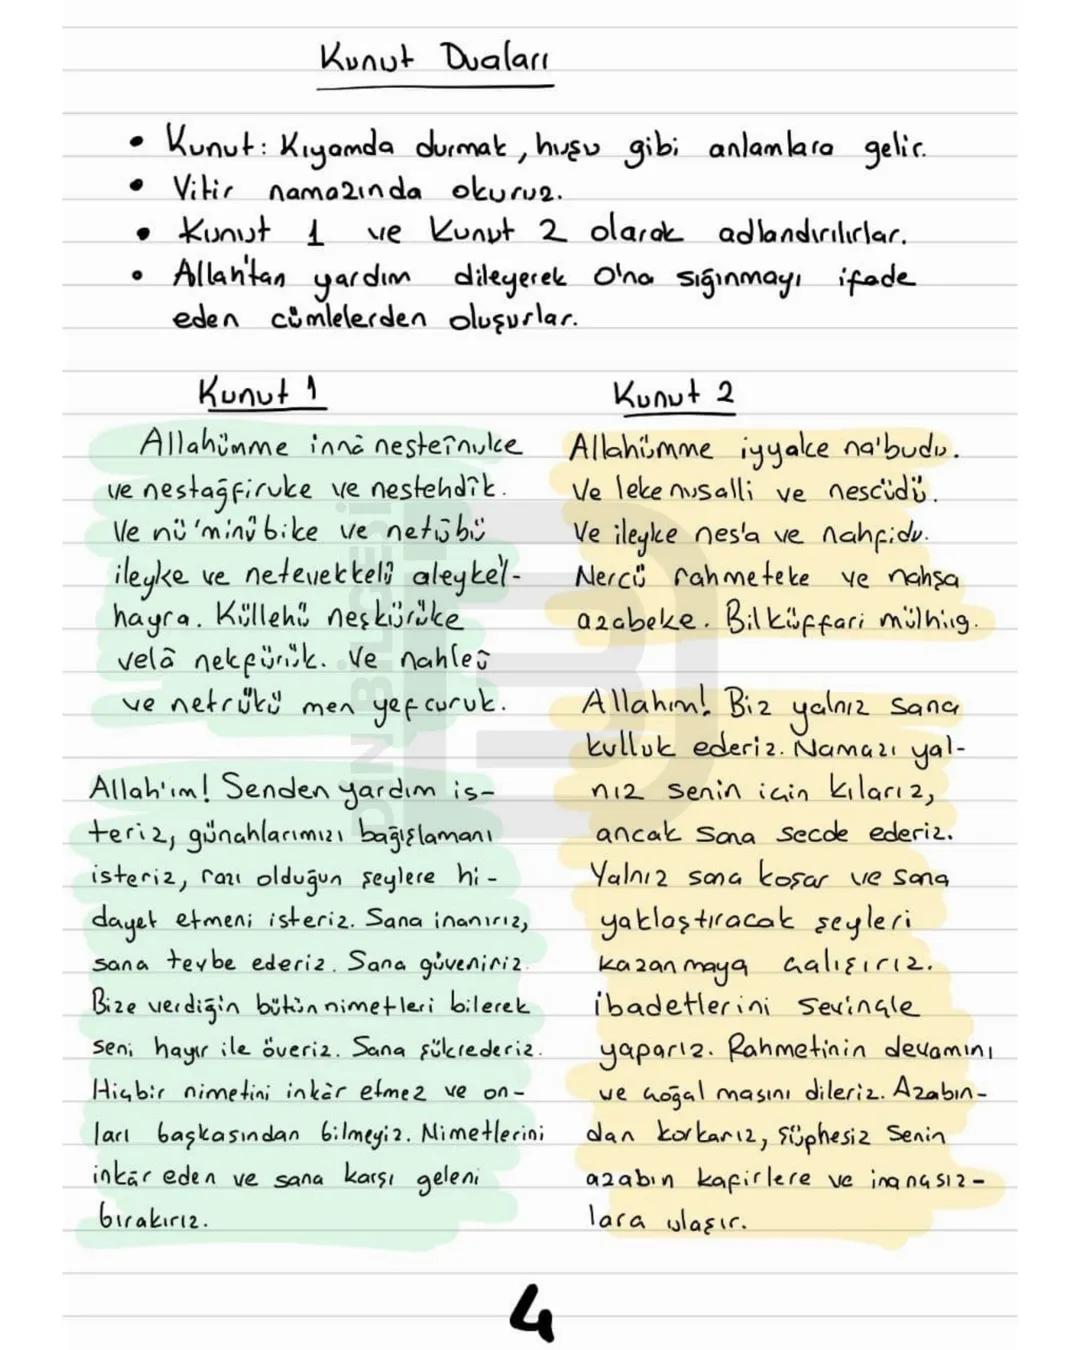 Kunut Duaları
• Kunut: Kıyamda durmak, huşu gibi anlamlara gelir.
• Vitir namazında okuruz.
• Kunut 1 ve Kunut 2 olarak adlandırılırlar.
• Allah'tan yardım dileyerek O'na sığınmayı ifade
eden cümlelerden oluşurlar.
Kunut 1
Allahümme innâ nesteînuke
ve nestağfiruke ve nestehdîk.
Ve nü'minü bike ve netûbü
ileyke ve netevekkelü aleyke'l-
hayra. Küllehü neşkürüke
velâ nekfürük. Ve nahleû
ve netrükü men yefcuruk.
Allah'ım! Senden yardım is-
teriz, günahlarımızı bağışlamanı
isteriz, razı olduğun şeylere hi-
dayet etmeni isteriz. Sana inanırız,
sana tevbe ederiz. Sana güveniriz.
Bize verdiğin bütün nimetleri bilerek
seni hayır ile överiz. Sana şükrederiz.
Hiçbir nimetini inkâr etmez ve on-
ları başkasından bilmeyiz. Nimetlerini
inkâr eden ve sana karşı geleni
bırakırız.
Kunut 2
Allahümme iyyake na'budu.
Ve leke nusalli ve nescüdü.
Ve ileyke nes'a ve nahfidu.
Nercû rahmeteke ve nahşa
azabeke. Bil küffari mülhig.
Allahım! Biz yalnız sana
kulluk ederiz. Namazı yal-
nız senin için kılarız,
ancak sana secde ederiz.
Yalnız sana koşar ve sana
yaklaştıracak şeyleri
kazanmaya çalışırız.
İbadetlerini sevinçle
yaparız. Rahmetinin devamını
ve çoğalmasını dileriz. Azabın-
dan korkarız, şüphesiz senin
azabın kafirlere ve inançsız-
lara ulaşır.
DİN BİLGESİ
4